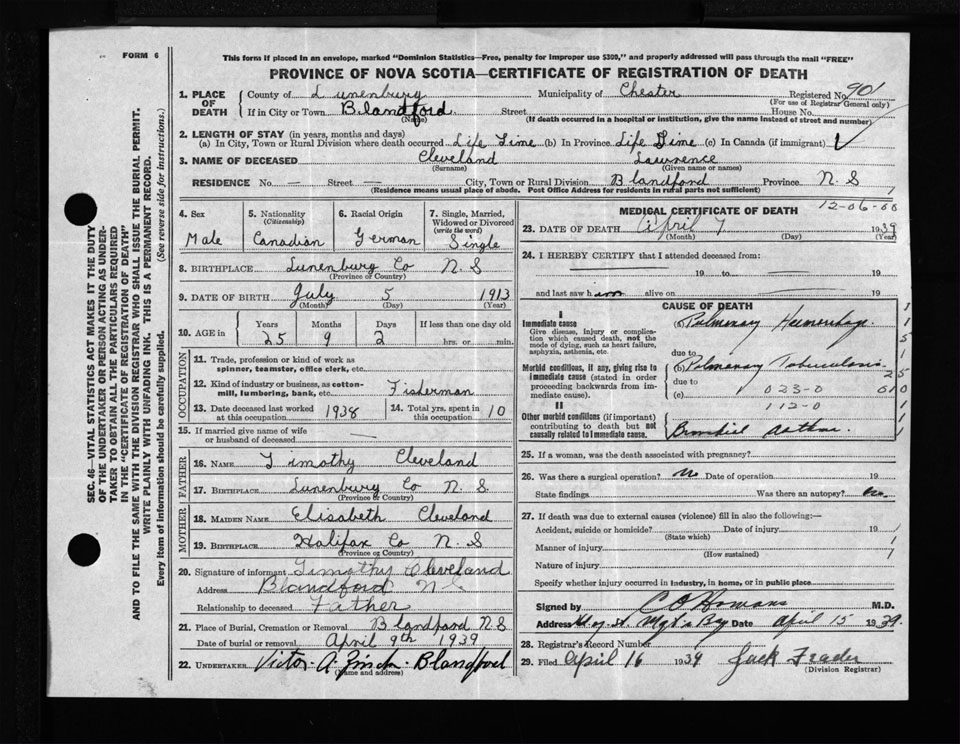 FORM 6
This form if placed in an envelope, marked "Dominion Statistics—Free, penalty for improper use $300," and properly addressed will pass through the mail "FREE"
PROVINCE OF NOVA SCOTIA—CERTIFICATE OF REGISTRATION OF DEATH
1. PLACE OF DEATH County of Lunenburg Municipality of Chester Registered No. 901
(For use of Registrar General only)
If in City or Town Blandford Street House No.
(Name) (If death occurred in a hospital or institution, give the name instead of street and number)
2. LENGTH OF STAY (in years, months and days)
(a) In City, Town or Rural Division where death occurred Life Time (b) In Province Life Time (c) In Canada (if immigrant)
3. NAME OF DECEASED Cleveland Lawrence
(Surname) (Given name or names)
RESIDENCE No. — Street — City, Town or Rural Division Blandford Province N. S
(Residence means usual place of abode. Post Office Address for residents in rural parts not sufficient)
4. Sex Male
5. Nationality (Citizenship) Canadian
6. Racial Origin German
7. Single, Married, Widowed or Divorced (write the word) Single
8. BIRTHPLACE Lunenburg Co N. S
(Province or Country)
9. DATE OF BIRTH July 5 1913
(Month) (Day) (Year)
10. AGE in Years 25 Months 9 Days 2 If less than one day old hrs. or min.
OCCUPATION
11. Trade, profession or kind of work as spinner, teamster, office clerk, etc.
12. Kind of industry or business, as cotton-mill, lumbering, bank, etc. Fisherman
13. Date deceased last worked at this occupation 1938
14. Total yrs. spent in this occupation 10
15. If married give name of wife or husband of deceased —
FATHER
16. NAME Timothy Cleveland
17. BIRTHPLACE Lunenburg Co N. S.
(Province or Country)
MOTHER
18. MAIDEN NAME Elisabeth Cleveland
19. BIRTHPLACE Halifax Co N. S
(Province or Country)
20. Signature of informant Timothy Cleveland
Address Blandford N S
Relationship to deceased Father
21. Place of Burial, Cremation or Removal Blandford N S
Date of burial or removal April 9th 1939
22. UNDERTAKER Victor A. Zinck Blandford
(Name and address)
MEDICAL CERTIFICATE OF DEATH
12-06-00
23. DATE OF DEATH April 7 1939
(Month) (Day) (Year)
24. I HEREBY CERTIFY that I attended deceased from:
19 to 19
and last saw him alive on 19
CAUSE OF DEATH
I
Immediate cause (a) Pulmonary Hemorrhage
Give disease, injury or complication which caused death, not the mode of dying, such as heart failure, asphyxia, asthenia, etc.
due to
Morbid conditions, if any, giving rise to immediate cause (stated in order proceeding backwards from immediate cause). (b) Pulmonary Tuberculosis
due to
(c) 023-0
112-0
II
Other morbid conditions (if important) contributing to death but not causally related to immediate cause. Bronchial Asthma
25. If a woman, was the death associated with pregnancy?
26. Was there a surgical operation? No Date of operation 19
State findings Was there an autopsy? No.
27. If death was due to external causes (violence) fill in also the following:—
Accident, suicide or homicide? Date of injury 19
(State which)
Manner of injury
(How sustained)
Nature of injury
Specify whether injury occurred in industry, in home, or in public place
Signed by C O Homans M.D.
Address Date April 15 1939.
28. Registrar's Record Number 7
29. Filed April 16 1939 Jack
(Division Registrar)
SEC. 46—VITAL STATISTICS ACT MAKES IT THE DUTY
OF THE UNDERTAKER OR PERSON ACTING AS UNDER-
TAKER TO OBTAIN ALL THE PARTICULARS REQUIRED
IN THE "CERTIFICATE OF REGISTRATION OF DEATH"
AND TO FILE THE SAME WITH THE DIVISION REGISTRAR WHO SHALL ISSUE THE BURIAL PERMIT.
WRITE PLAINLY WITH UNFADING INK. THIS IS A PERMANENT RECORD.
Every item of information should be carefully supplied. (See reverse side for instructions.)